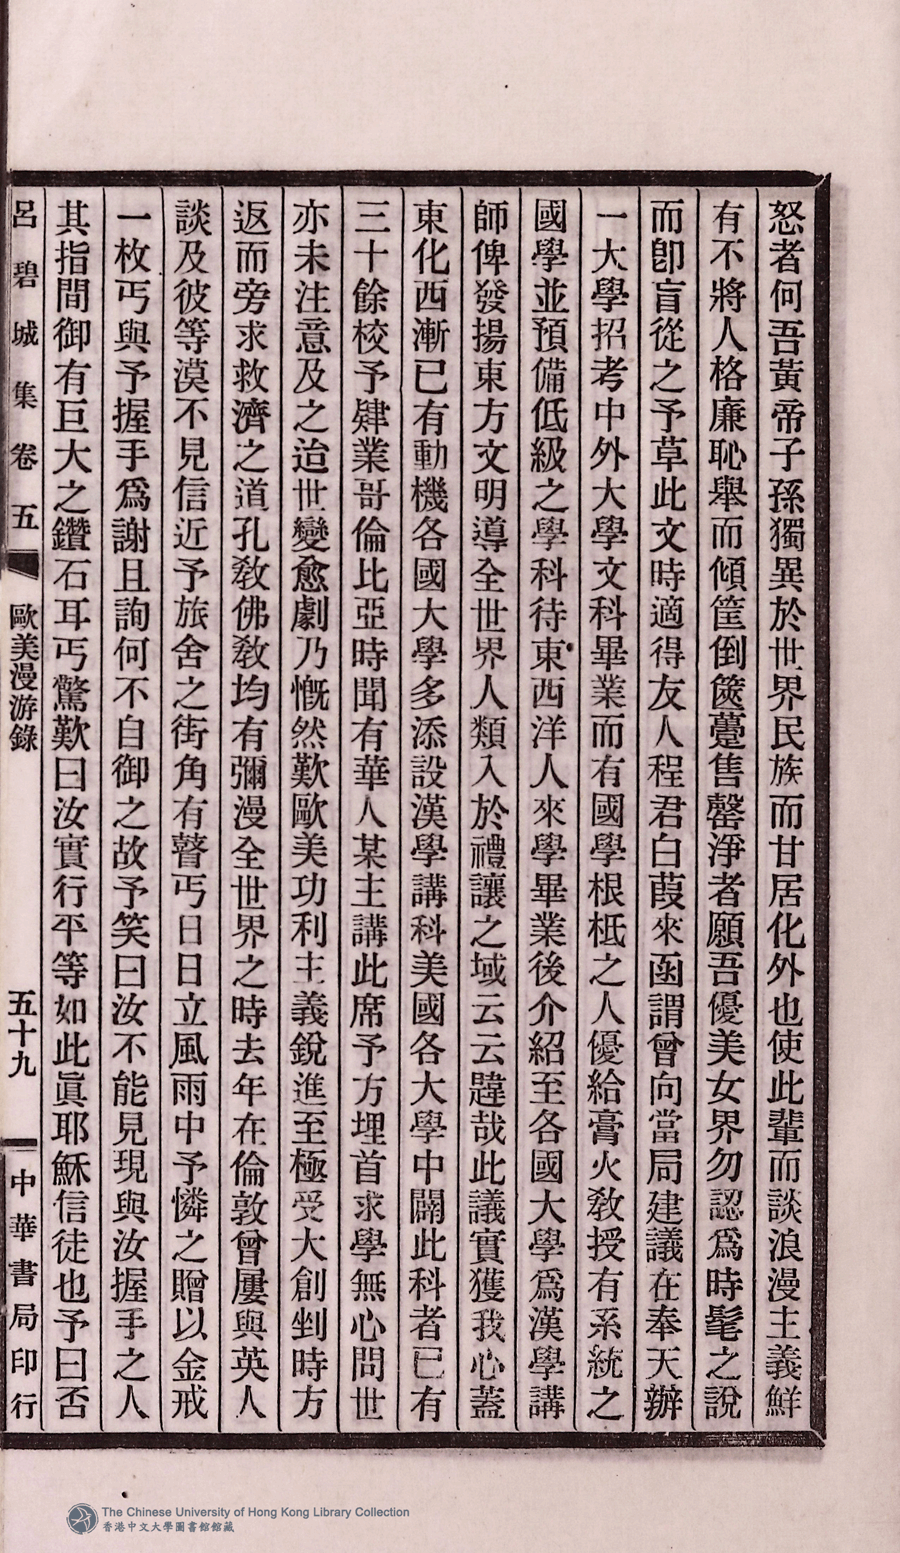 怒者何吾黃帝子孫獨異於世界民族而甘居化外也使此輩而談浪漫主義鮮
有不將人格廉恥舉而傾筐倒篋躉售罄淨者願吾優美女界勿認爲時髦之說
而卽盲從之予草此文時適得友人程君白葭來函謂曾向當局建議在奉天辦
一大學招考中外大學文科畢業而有國學根柢之人優給膏火敎授有系統之
國學並預備低級之學科待東西洋人來學畢業後介紹至各國大學爲漢學講
師俾發揚東方文明導全世界人類入於禮讓之域云云韙哉此議實獲我心蓋
東化西漸已有動機各國大學多添設漢學講科美國各大學中關此科者已有
三十餘校予肄業哥倫比亞時聞有華人某主講此席予方埋首求學無心問世
亦未注意及之迨世變愈劇乃慨然歎歐美功利主義銳進至極受大創剉時方
返而旁求救濟之道孔敎佛敎均有彌漫全世界之時去年在倫敦曾屢與英人
談及彼等漠不見信近予旅舍之街角有瞽丐日日立風雨中予憐之贈以金戒
一枚丐與予握手爲謝且詢何不自御之故予笑曰汝不能見現與汝握手之人
其指間御有巨大之鑽石耳丐驚歎曰汝實行平等如此眞耶穌信徒也予曰否
呂碧城集卷五 歐美漫游錄 五十九 中華書局印行
The Chinese University of Hong Kong Library Collection
香港中文大學圖書館館藏